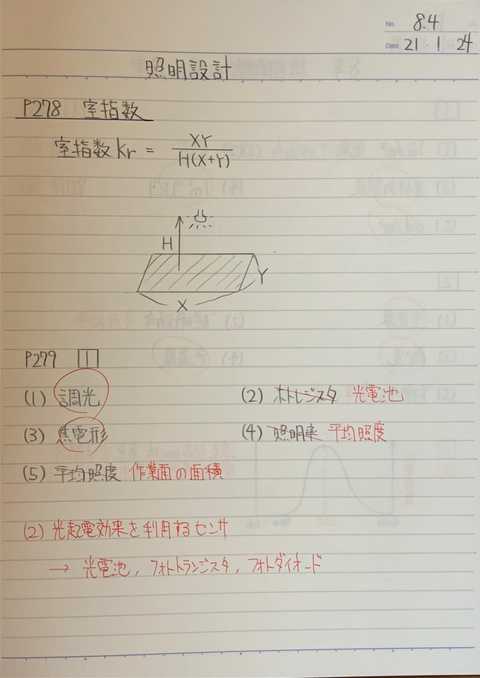 No. 8.4
Date 21・1・24
照明設計
P278 室指数
室指数 kr = XY / H(X+Y)
H
X
Y
P279 1
(1) 調光 (2) ホトレジスタ 光電池
(3) 焦電形 (4) 照明率 平均照度
(5) 平均照度 作業面の面積
(2) 光起電効果を利用するセンサ
→ 光電池, フォトトランジスタ, フォトダイオード